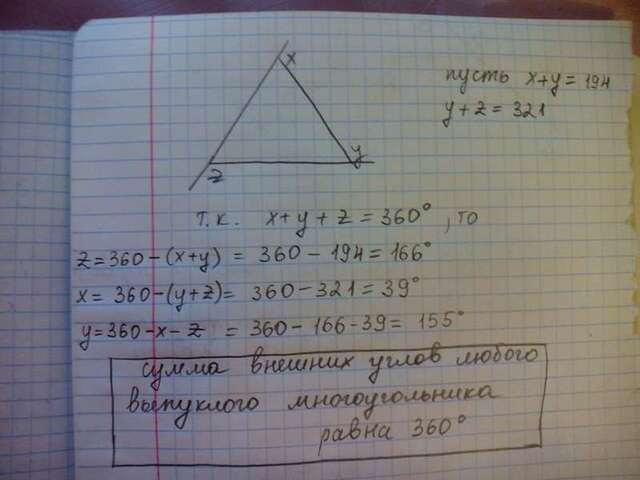 x
y
z
пусть x+y = 194
y+z = 321
т.к. x+y+z = 360°, то
z = 360-(x+y) = 360-194 = 166°
x = 360-(y+z) = 360-321 = 39°
y = 360-x-z = 360-166-39 = 155°
сумма внешних углов любого
выпуклого многоугольника
равна 360°